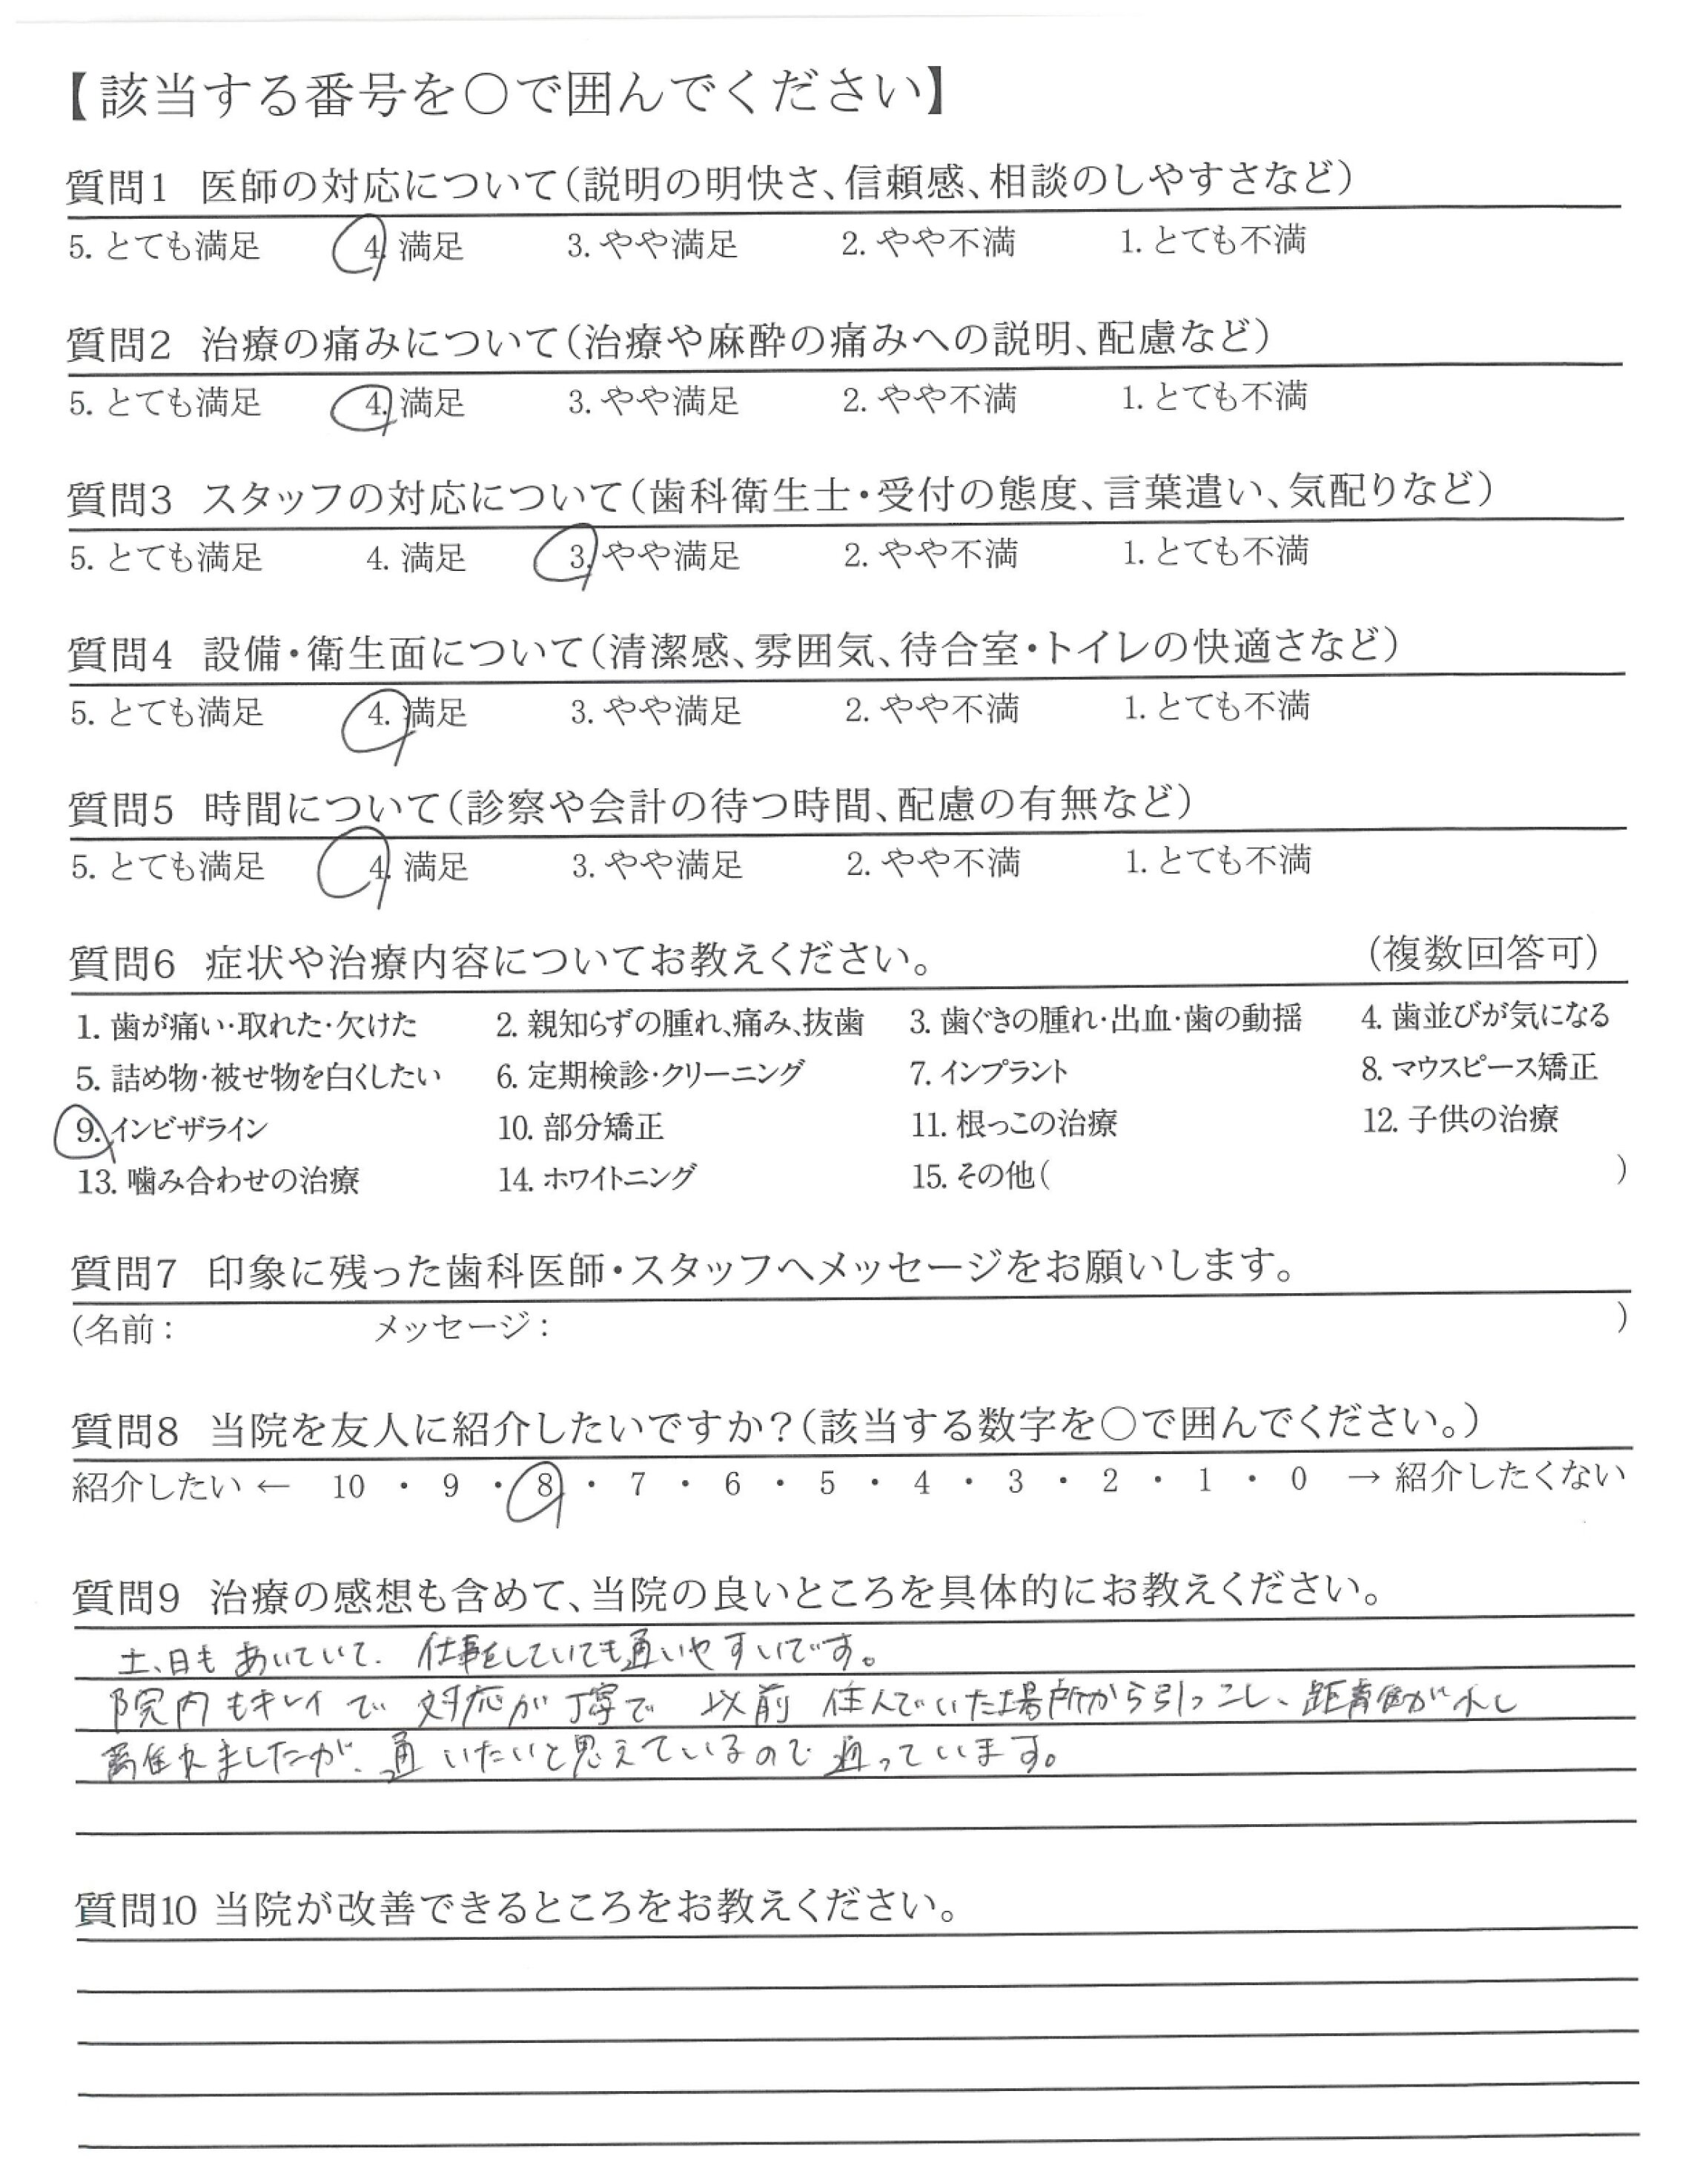 【該当する番号を○で囲んでください】
質問1 医師の対応について(説明の明快さ、信頼感、相談のしやすさなど)
5. とても満足 4. 満足 3. やや満足 2. やや不満 1. とても不満
質問2 治療の痛みについて(治療や麻酔の痛みへの説明、配慮など)
5. とても満足 4. 満足 3. やや満足 2. やや不満 1. とても不満
質問3 スタッフの対応について(歯科衛生士・受付の態度、言葉遣い、気配りなど)
5. とても満足 4. 満足 3. やや満足 2. やや不満 1. とても不満
質問4 設備・衛生面について(清潔感、雰囲気、待合室・トイレの快適さなど)
5. とても満足 4. 満足 3. やや満足 2. やや不満 1. とても不満
質問5 時間について(診察や会計の待つ時間、配慮の有無など)
5. とても満足 4. 満足 3. やや満足 2. やや不満 1. とても不満
質問6 症状や治療内容についてお教えください。 (複数回答可)
1. 歯が痛い・取れた・欠けた 2. 親知らずの腫れ、痛み、抜歯 3. 歯ぐきの腫れ・出血・歯の動揺 4. 歯並びが気になる
5. 詰め物・被せ物を白くしたい 6. 定期検診・クリーニング 7. インプラント 8. マウスピース矯正
9. インビザライン 10. 部分矯正 11. 根っこの治療 12. 子供の治療
13. 噛み合わせの治療 14. ホワイトニング 15. その他( )
質問7 印象に残った歯科医師・スタッフへメッセージをお願いします。
(名前: メッセージ: )
質問8 当院を友人に紹介したいですか?(該当する数字を○で囲んでください。)
紹介したい ← 10 ・ 9 ・ 8 ・ 7 ・ 6 ・ 5 ・ 4 ・ 3 ・ 2 ・ 1 ・ 0 → 紹介したくない
質問9 治療の感想も含めて、当院の良いところを具体的にお教えください。
土、日もあいていて、仕事をしていても通いやすいです。
院内もキレイで対応が丁寧で以前住んでいた場所から引っこし、距離が少し
離れましたが、通いたいと思えているので通っています。
質問10 当院が改善できるところをお教えください。